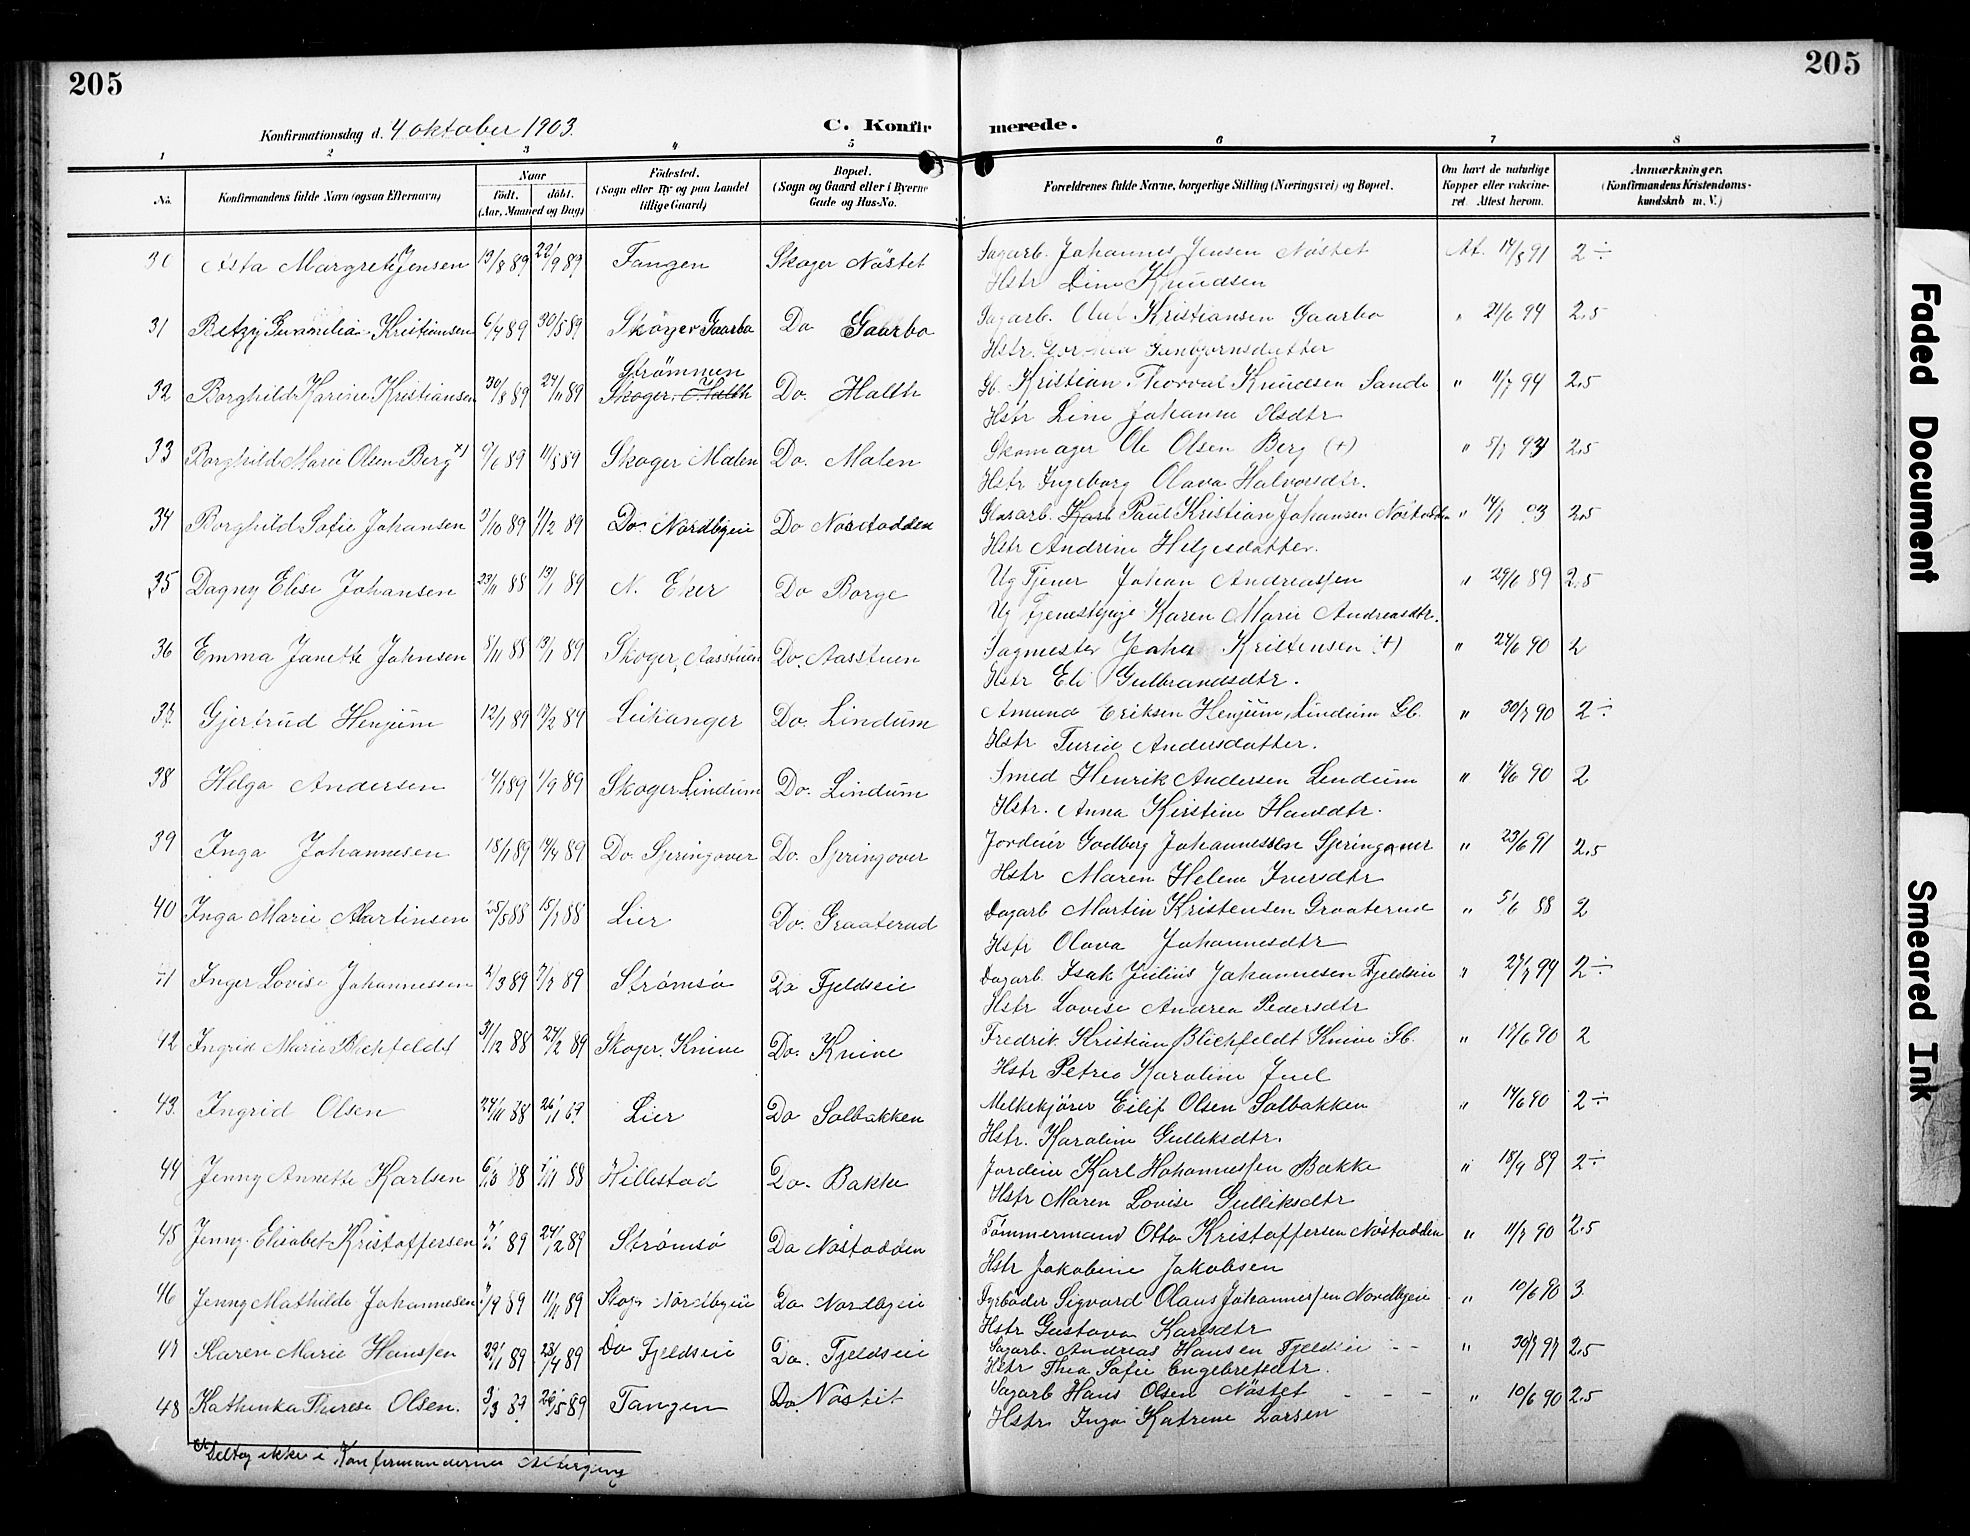 205
205
Konfirmationsdag d. 4 oktober 1903.
C. Konfirmerede.
1 2 3 4 5 6 7 8
No. Konfirmandens fulde Navn (ogsaa Efternavn) Naar Födt. döbt. (Aar, Maaned og Dag) Födested. (Sogn eller By og paa Landet tillige Gaard) Bopæl. (Sogn og Gaard eller i Byerne Gade og Hus-No. Forældrenes fulde Navne, borgerlige Stilling (Næringsvei) og Bopæl. Om havt de naturlige Kopper eller vakcineret. Attest herom. Anmærkninger. (Konfirmandens Kristendomskundskab m. V.)
30 Asta Margrete Jensen 13/8 89 22/9 89 Tangen Skoger Nöstet Sagarb. Johannes Jensen Nöstet At. 14/8 91 2÷
Hstr Knudsen
31 Betzy Kristiansen 6/4 89 30/5 89 Skoger Gaarbo Do Gaarbo Sagarb. Kristiansen Gaarbo " 21/6 94 2.5
Hstr.
32 Borghild Karine Kristiansen 30/8 89 24/11 89 Strömmen Skoger. Halth Do. Halth Gb. Kristian Knudsen Sande " 11/7 94 2.5
Hstr Johanne
33 Borghild Marie Olsen Berg x) 9/6 89 11/8 89 Skoger Malen Do. Malen Skomager Ole Olsen Berg (+) " 5/7 93 2.5
Hstr Ingeborg Olava Halvorsdtr.
34 Borghild Sofie Johansen 3/10 89 1/12 89 Do. Nordbyeie Do Nöstodden Karl Paul Kristian Johansen Nöstodden " 14/7 03 2.5
Hstr Andrine Helgesdatter.
35 Dagny Elise Johansen 23/11 88 13/1 89 N. Eker Do Borge Ug Tjener Johan Andreassen " 29/6 89 2.5
Ug Tjenestepige Karen Marie Andreasdtr.
36 Emma Janette Johnsen 5/11 88 13/1 89 Skoger, Aasstuen Do. Aasstuen Sagmester Kristensen (+) " 24/6 90 2
Hstr Eli Gulbrandsdtr.
37. Gjertrud Henjum 12/1 89 17/2 89 Leikanger Do. Lindum Amund Eriksen Henjum, Lindum Gb. " 30/7 90 2÷
Hstr Turid Andersdatter.
38 Helga Andersen 4/7 89 1/9 89 Skoger Lindum Do. Lindum Smed Henrik Andersen Lindum " 17/6 90 2
Hstr. Anna Kirstine Hansdtr.
39 Inga Johannesen 18/1 89 14/4 89 Do. Springover Do. Springover Jordeier Godberg Johannessen Springover " 23/6 91 2.5
Hstr Maren Helene Iversdtr
40 Inga Marie Martinsen 25/5 88 15/7 88 Lier Do. Graaterud Dagarb Martin Kristensen Graaterud " 5/6 88 2
Hstr Olava Johannesdtr
41 Inger Lovise Johannessen 2/3 89 7/7 89 Strömsö Do Fjeldseie Dagarb. Isak Julius Johannesen Fjeldseie " 27/7 99 2÷
Hstr Lovise Andrea Pedersdtr
42 Ingrid Marie Blichfeldt 31/12 88 24/2 89 Skoger. Knive Do. Knive Fredrik Kristian Blichfeldt Knive Gb. " 17/6 90 2
Hstr Petrea Karoline Juel
43. Ingrid Olsen 24/11 88 26/1 67. Lier Do Solbakken Melkekjörer Eilif Olsen Solbakken " 14/6 90 2÷
Hstr. Karoline Gulliksdtr.
44 Jenny Annette Karlsen 6/3 88 1/11 88 Hillestad Do. Bakke Jordeier Karl Hohannessen Bakke " 18/9 89 2÷
Hstr Maren Lovise Gulliksdtr
45 Jenny Elisabet Kristoffersen 89 24/2 89 Strömsö Do Nöstodden Tömmermand Otto Kristoffersen Nöstodden " 11/7 90 2.5
Hstr Jakobine Jakobsen
46 Jenny Mathilde Johannesen 7/9 89 11/11 89 Skoger Nordbyeie Do Nordbyeie Fyrböder Sigvard Olaus Johannessen Nordbyeie " 10/6 90 3
Hstr Gustava Karlsdtr
47 Karen Marie Hanssen 29/1 89 23/4 89 Do Fjeldseie Do. Fjeldseie Sagarb. Andreas Hansen Fjeldseie - - " 30/7 97 2.5
Hstr Thea Sofie Engebretsdtr.
48 Kathinka Therese Olsen. 3/3 89 26/5 89 Tangen Do. Nöstet Sagarb Hans Olsen Nöstet - - - " 10/6 90 2.5
Hstr Inga Katrine Larsen
x) Deltog ikke i Konfirmandernes Altergang
Faded Document
Smeared Ink